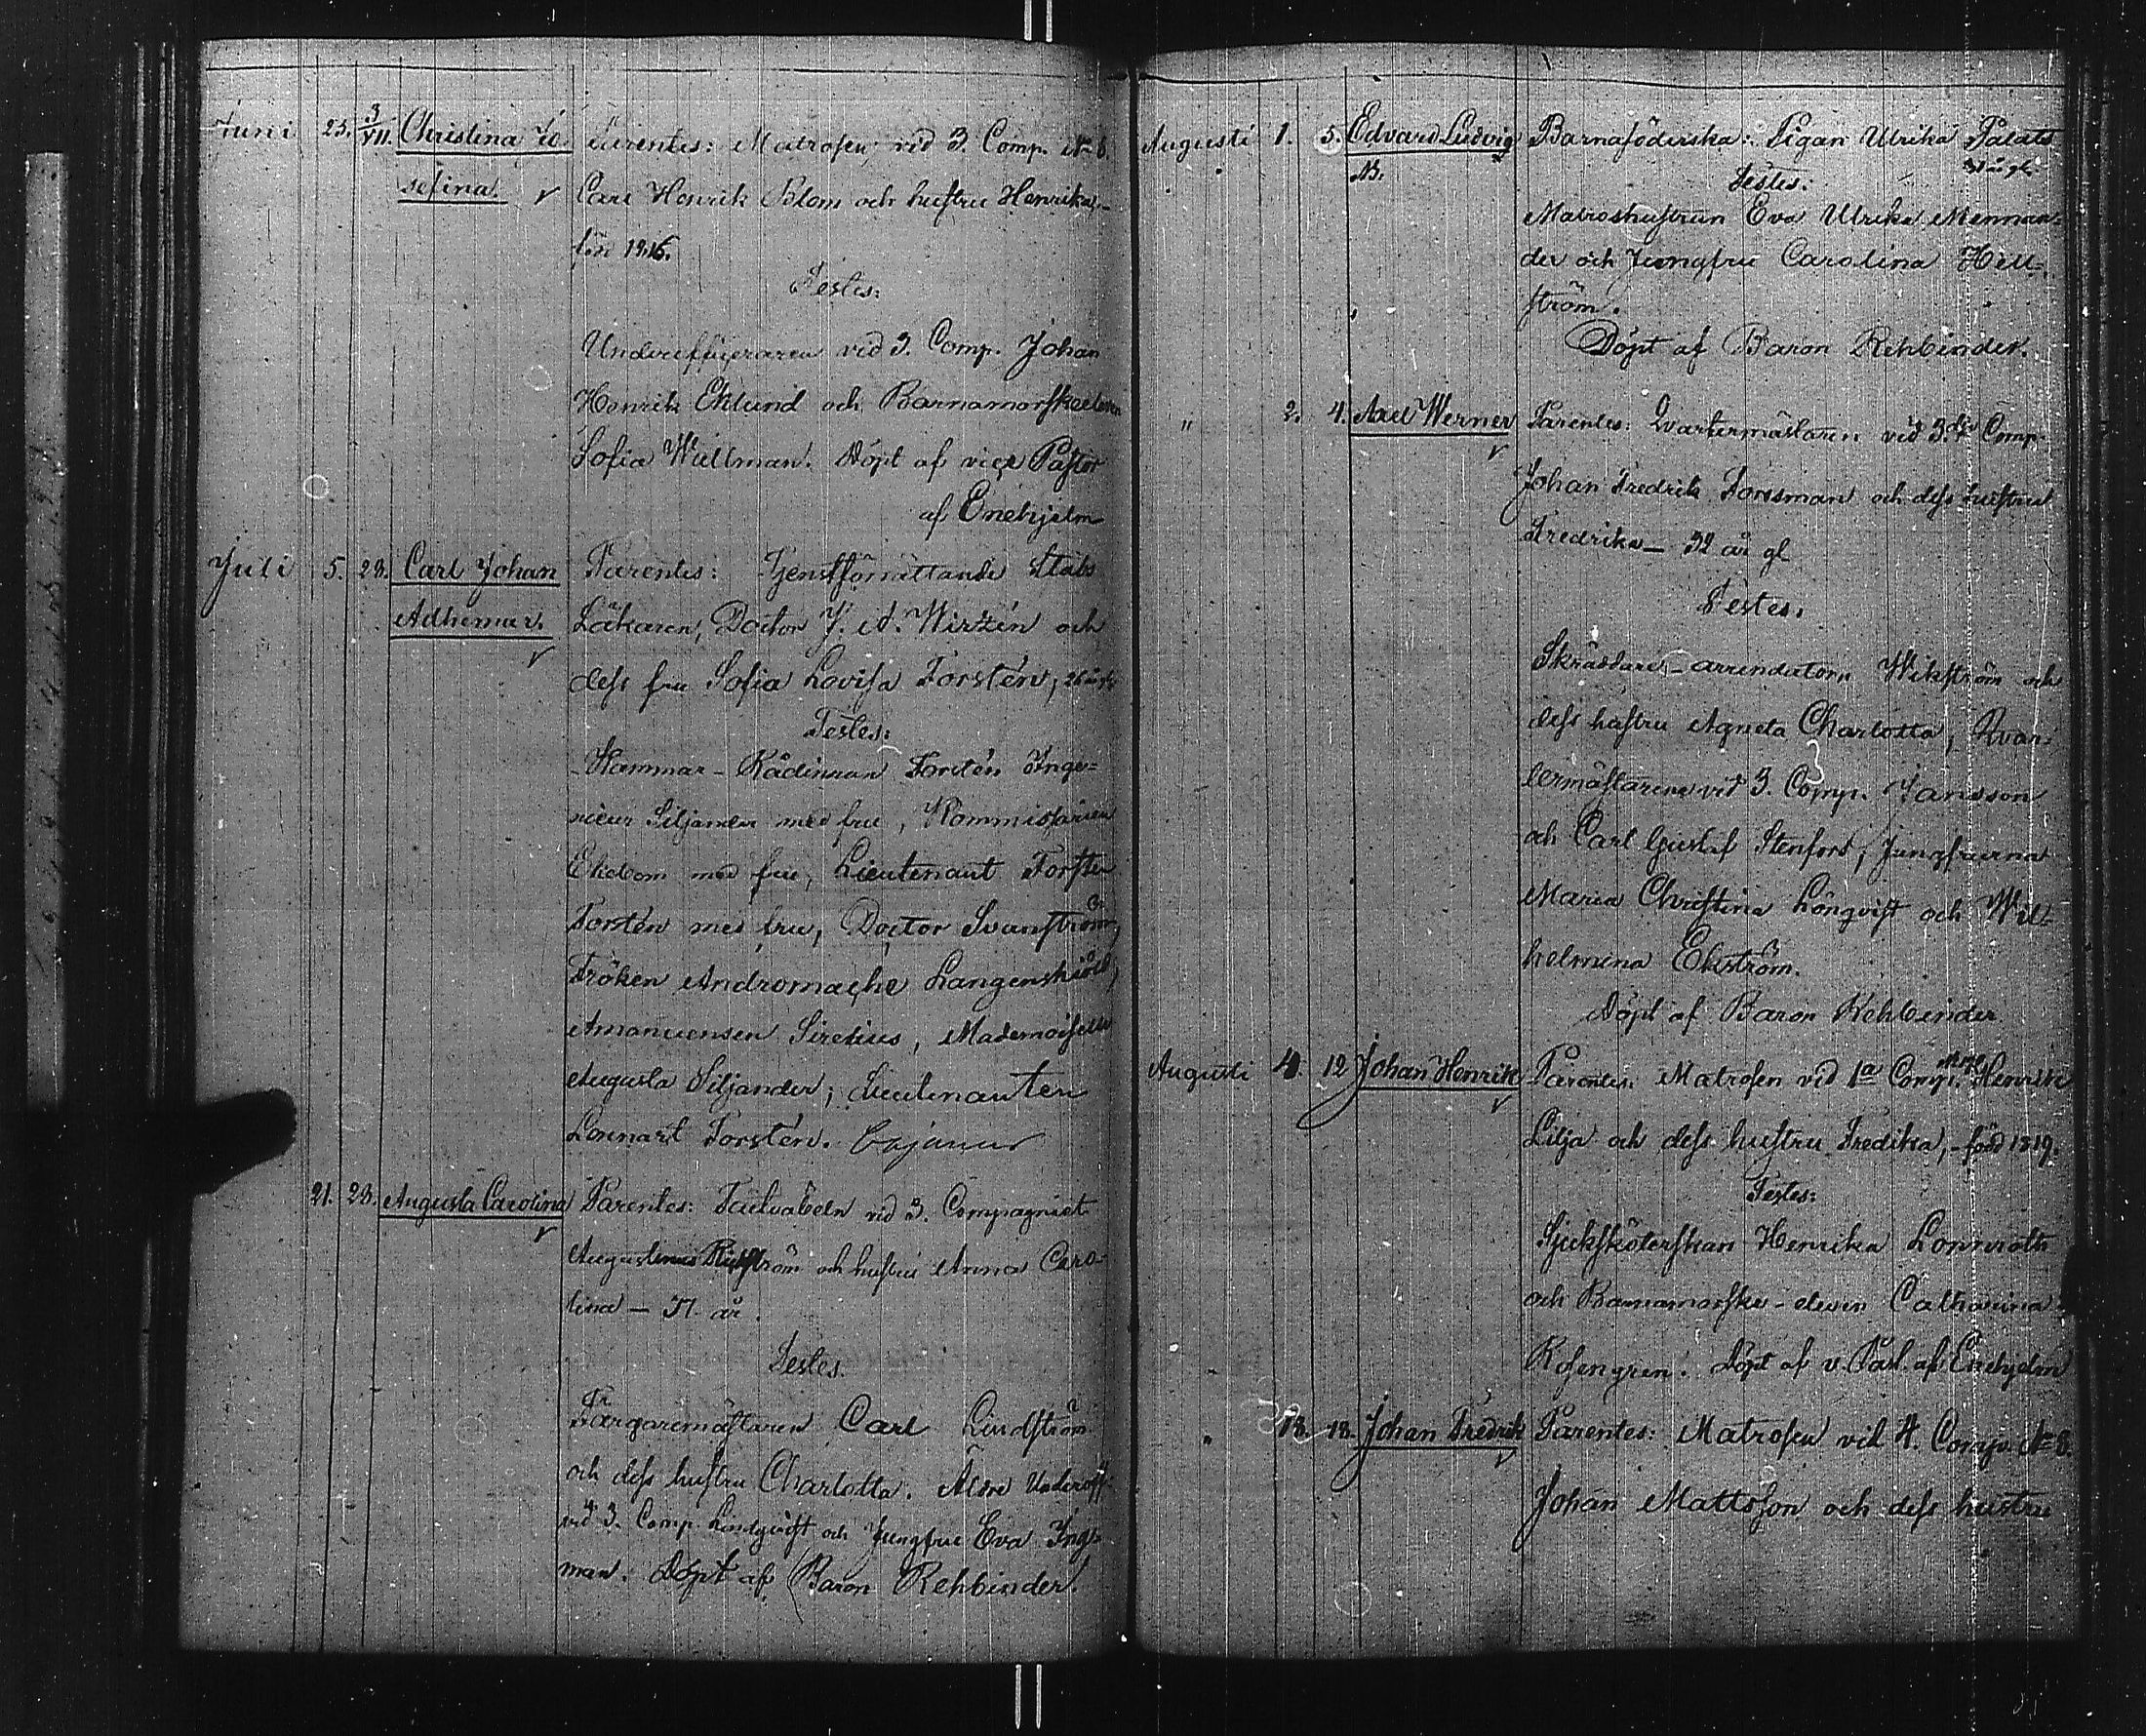 Juni 23. 3/VII. Christina Jo- Parentes: Matrosen vid 3. Comp. No 8.
sefina. Carl Henrik Blom och hustru Henrika,
född 1816.
Testes:
Underofficeraren vid 3. Comp. Johan
Henrik Eklund och Barnamorskeeleven
Sofia Wullman. Döpt af vice Pastor
af Enehjelm
Juli 5. 23. Carl Johan Parentes: Tjenstförrättande Stabs
Adhemar. Läkaren, Doctor J. A. Wirzén och
dess fru Sofia Lovisa Forstén, 26 år gl
Testes:
Kammar-Rådinnan Forstén Inge-
nieur Siljander med fru, Kommissarien
Ekebom med fru, Lieutenant Torsten
Forstén med fru, Doctor Svanström,
Fröken Andromache Langenskiöld,
Amanuensen Sirelius, Mademoiselle
Augusta Siljander; Lieutenanten
Lennart Forstén. Cajanus
21. 23. Augusta Carolina Parentes: Fältväbeln vid 3. Compagniet
Augustinus och hustru Anna Caro-
lina — 37. år.
Testes.
Färgaremästaren Carl Lindström
och dess hustru Charlotta. Äldre Underoff.
vid 3. Comp. Lindqvist och Jungfru Eva Ing-
man. Döpt af Baron Rehbinder.
Augusti 1. 5. Edvard Ludvig Barnaföderska: Pigan Ulrika Palats
år gl.
NB. Testes:
Matroshustrun Eva Ulrika Mennan-
der och Jungfru Carolina Hell-
ström.
Döpt af Baron Rehbinder.
" 2. 4. Axel Werner Parentes: Qvartermästaren vid 3.dje Comp.
Johan Fredrik Forssman och dess hustru
Fredrika — 32 år gl
Testes.
Skräddare-arrendatorn Wikström och
dess hustru Agneta Charlotta, Qvar-
termästarene vid 3. Comp. Jansson
och Carl Gustaf Stenfors, Jungfrurna
Maria Christina Lönqvist och Wil-
helmina Ekström.
Döpt af Baron Rehbinder
Augusti 4. 12 Johan Henrik Parentes: Matrosen vid 1a Comp. Henrik
Lilja och dess hustru Fredika, född 1819.
Testes:
Sjuksköterskan Henrika Lönnroth
och Barnamorske-eleven Catharina
Rosengren. Döpt af v. Past. af Enehjelm
" 18. 18. Johan Fredrik Parentes: Matrosen vid 4. Comp. No 8.
Johan Mattsson och dess hustru